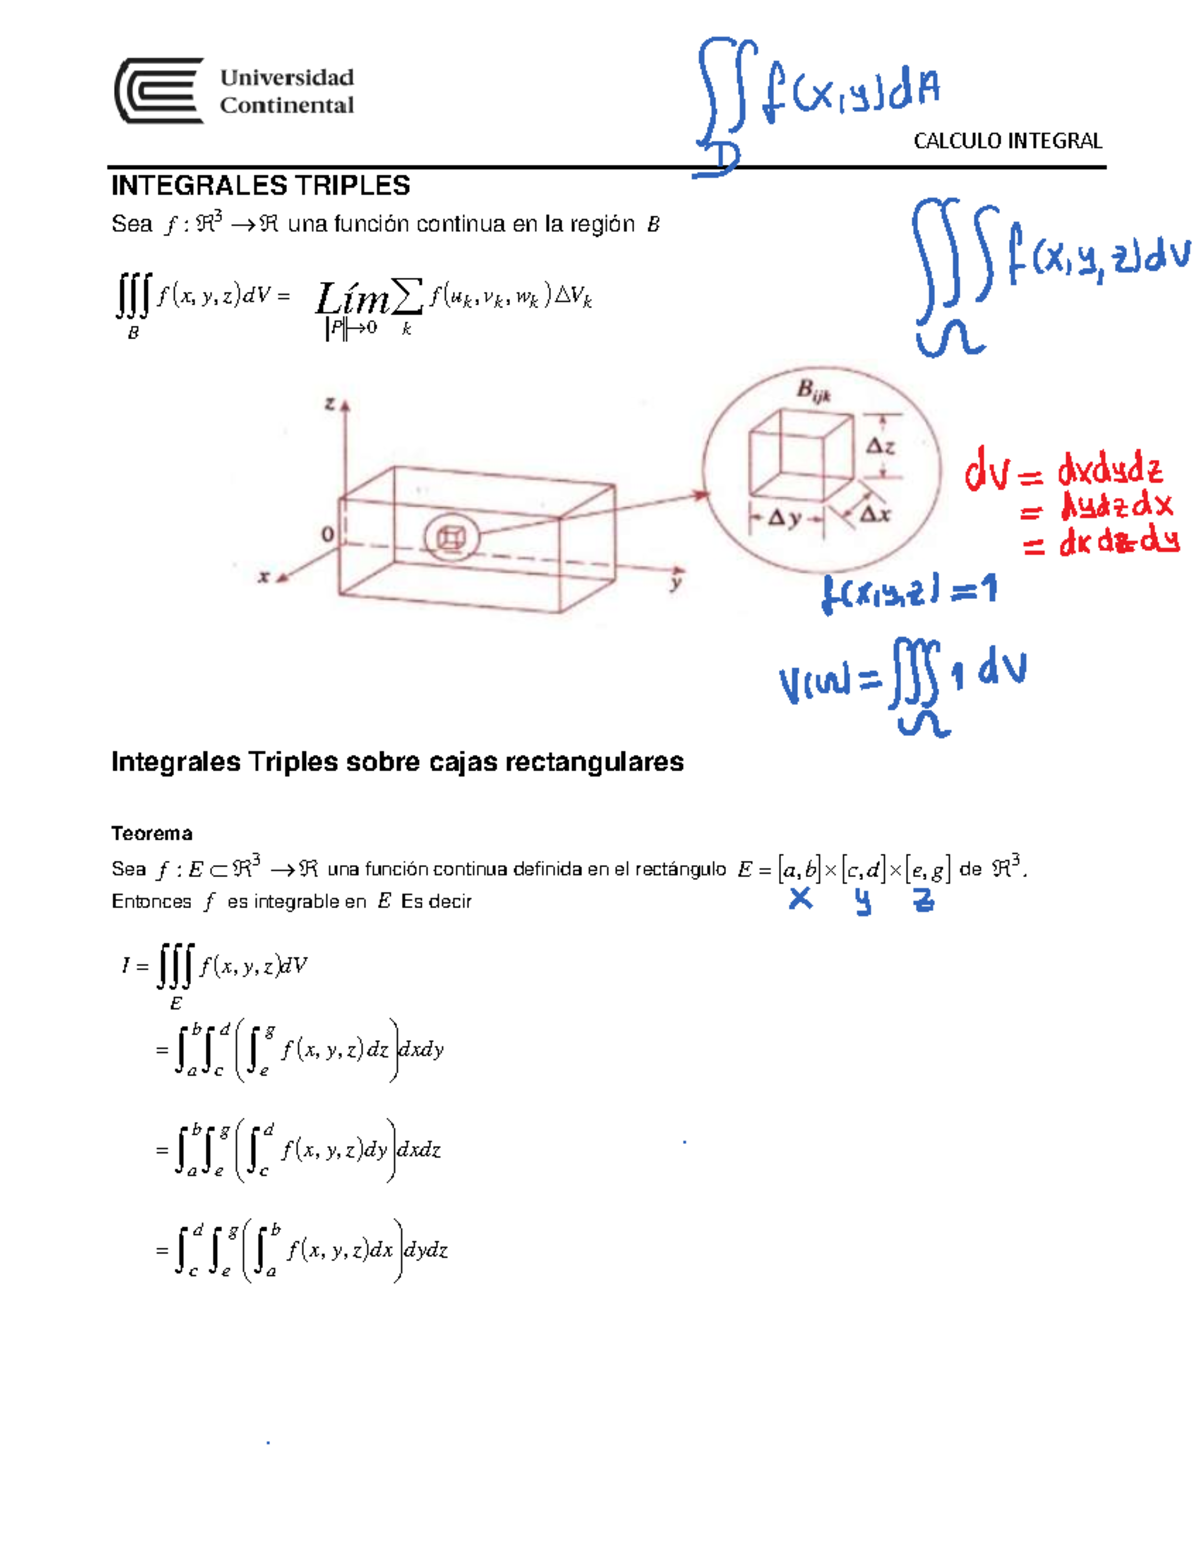 Universidad
Continental
∬_D f(x,y)dA
CALCULO INTEGRAL
INTEGRALES TRIPLES
Sea f : ℜ³ → ℜ una función continua en la región B
∭_Ω f(x,y,z)dV
∭_B f(x, y, z)dV = Lím_{‖P‖→0} ∑_k f(u_k, v_k, w_k)ΔV_k
B_ijk
z
Δz
Δy
Δx
0
x
y
dV = dxdydz
= dydzdx
= dxdzdy
f(x,y,z) = 1
V(Ω) = ∭_Ω 1 dV
Integrales Triples sobre cajas rectangulares
Teorema
Sea f : E ⊂ ℜ³ → ℜ una función continua definida en el rectángulo E = [a,b]×[c,d]×[e,g] de ℜ³.
x y z
Entonces f es integrable en E Es decir
I = ∭_E f(x, y, z)dV
= ∫_a^b ∫_c^d (∫_e^g f(x, y, z)dz)dxdy
= ∫_a^b ∫_e^g (∫_c^d f(x, y, z)dy)dxdz
= ∫_c^d ∫_e^g (∫_a^b f(x, y, z)dx)dydz